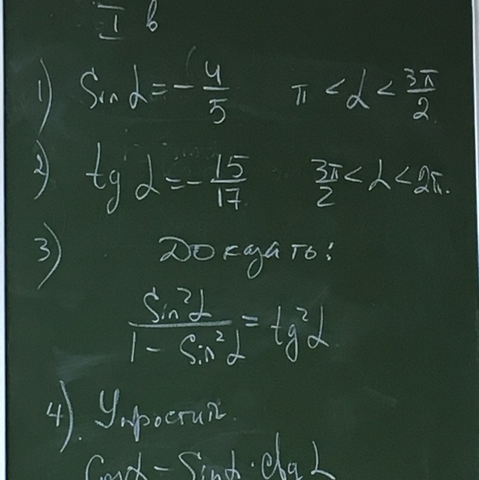 I в
1) Sin α = -4/5 π < α < 3π/2
2) tg α = -15/17 3π/2 < α < 2π.
3) Доказать:
Sin²α / 1 - Sin²α = tg²α
4). Упростит.
Cosα - Sinα · ctg α